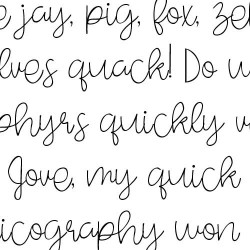 e jay, pig, fox, ze
lves quack! Do w
phyrs quickly w
Jove, my quick
icography won